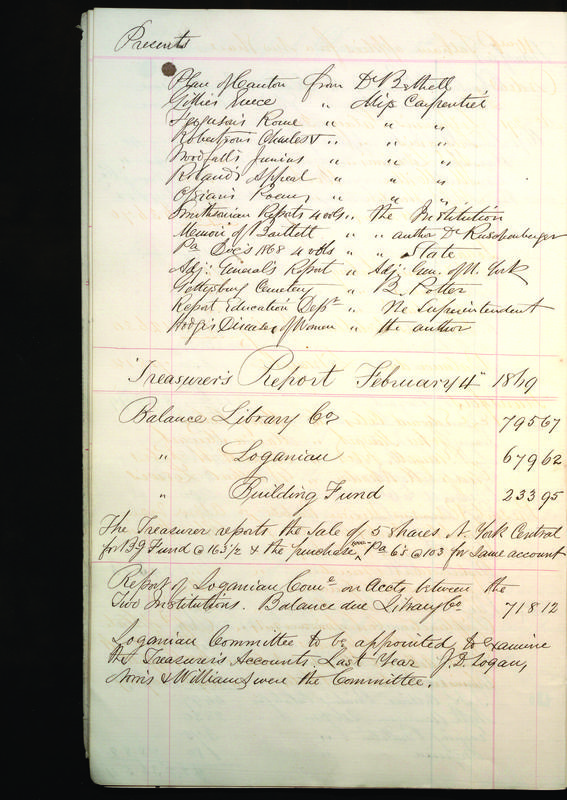 Presents
Plan of Canton from Dr Bethell
Gillies Greece " Miss Carpentier
Ferguson's Rome " " "
Robertson's Charles V " " "
Woodfall's Junius " " "
Roland's Appeal " " "
Ossian's Poems " " "
Smithsonian Reports 4 vols " the Institution
Memoir of Bartlett " " author Dr Ruschenberger
Pa Doc's 1868 4 vols " " State
Adj: General's Report " Adj: Gen. of N. York
Gettysburg Cemetery " B. Potter
Report Education Dept " The Superintendent
Hodge's Diseases of Women " the author
Treasurer's Report February 4" 1869
Balance Library Co 795 67
" Loganian 679 62
" Building Fund 233 95
The Treasurer reports the sale of 5 shares N. York Central
for Bg Fund @ 163 1/2 & the purchase Pa 6s @ 103 for same account
Report of Loganian Come on Accts between the
Two Institutions. Balance due Library Co 718 12
Loganian Committee to be appointed to examine
the Treasurer's Accounts. Last Year J. D. Logan,
Norris & Williams were the Committee.